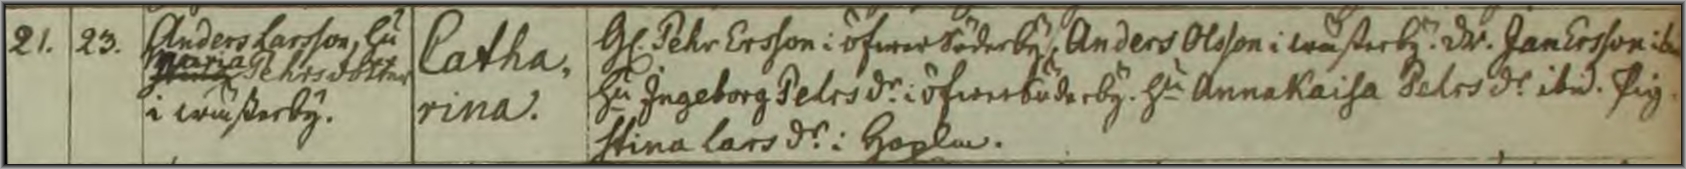 21. 23. Anders Larsson, Hu Catha, Gl. Pehr Ersson i öfwer Söderby, Anders Olsson i wäfterby. Dr. Jan Ersson ibm
Maria Pehrsdotter rina. Hu Ingeborg Pehrs dr. i öfwerbüderby. Hu Anna Kaisa Pehrs dr ibid. Pig.
i wäfterby. Stina Lars dr. i